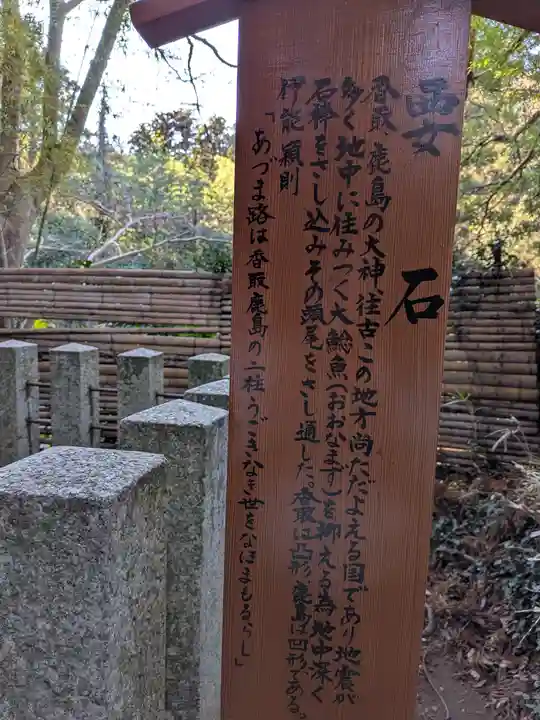 要石
香取、鹿島の大神、往古この地方尚ただよえる国であり地震が
多く地中に住みつく大鯰魚(おおなまず)を抑える為地中深く
石棒をさし込みその頭尾をさし通した。香取は凸形、鹿島は凹形である。
伊能頴則
「あづま路は香取鹿島の二柱うごきなき世をなほまもるらし」